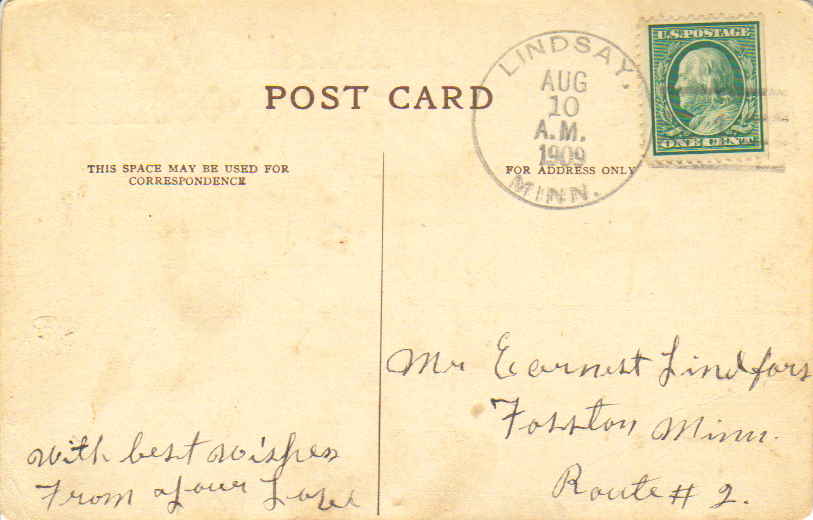 U.S. POSTAGE
ONE CENT
LINDSAY,
AUG
10
A.M.
1909
MINN.
POST CARD
THIS SPACE MAY BE USED FOR
CORRESPONDENCE
FOR ADDRESS ONLY
Mr Earnest Lindfors
Fosston Minn.
Route # 2.
With best wishes
From your